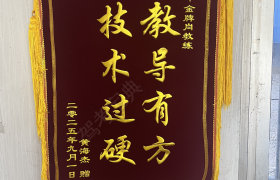 金牌岗教练
教导有方
技术过硬
黄海杰 赠
二零二五年九月一日